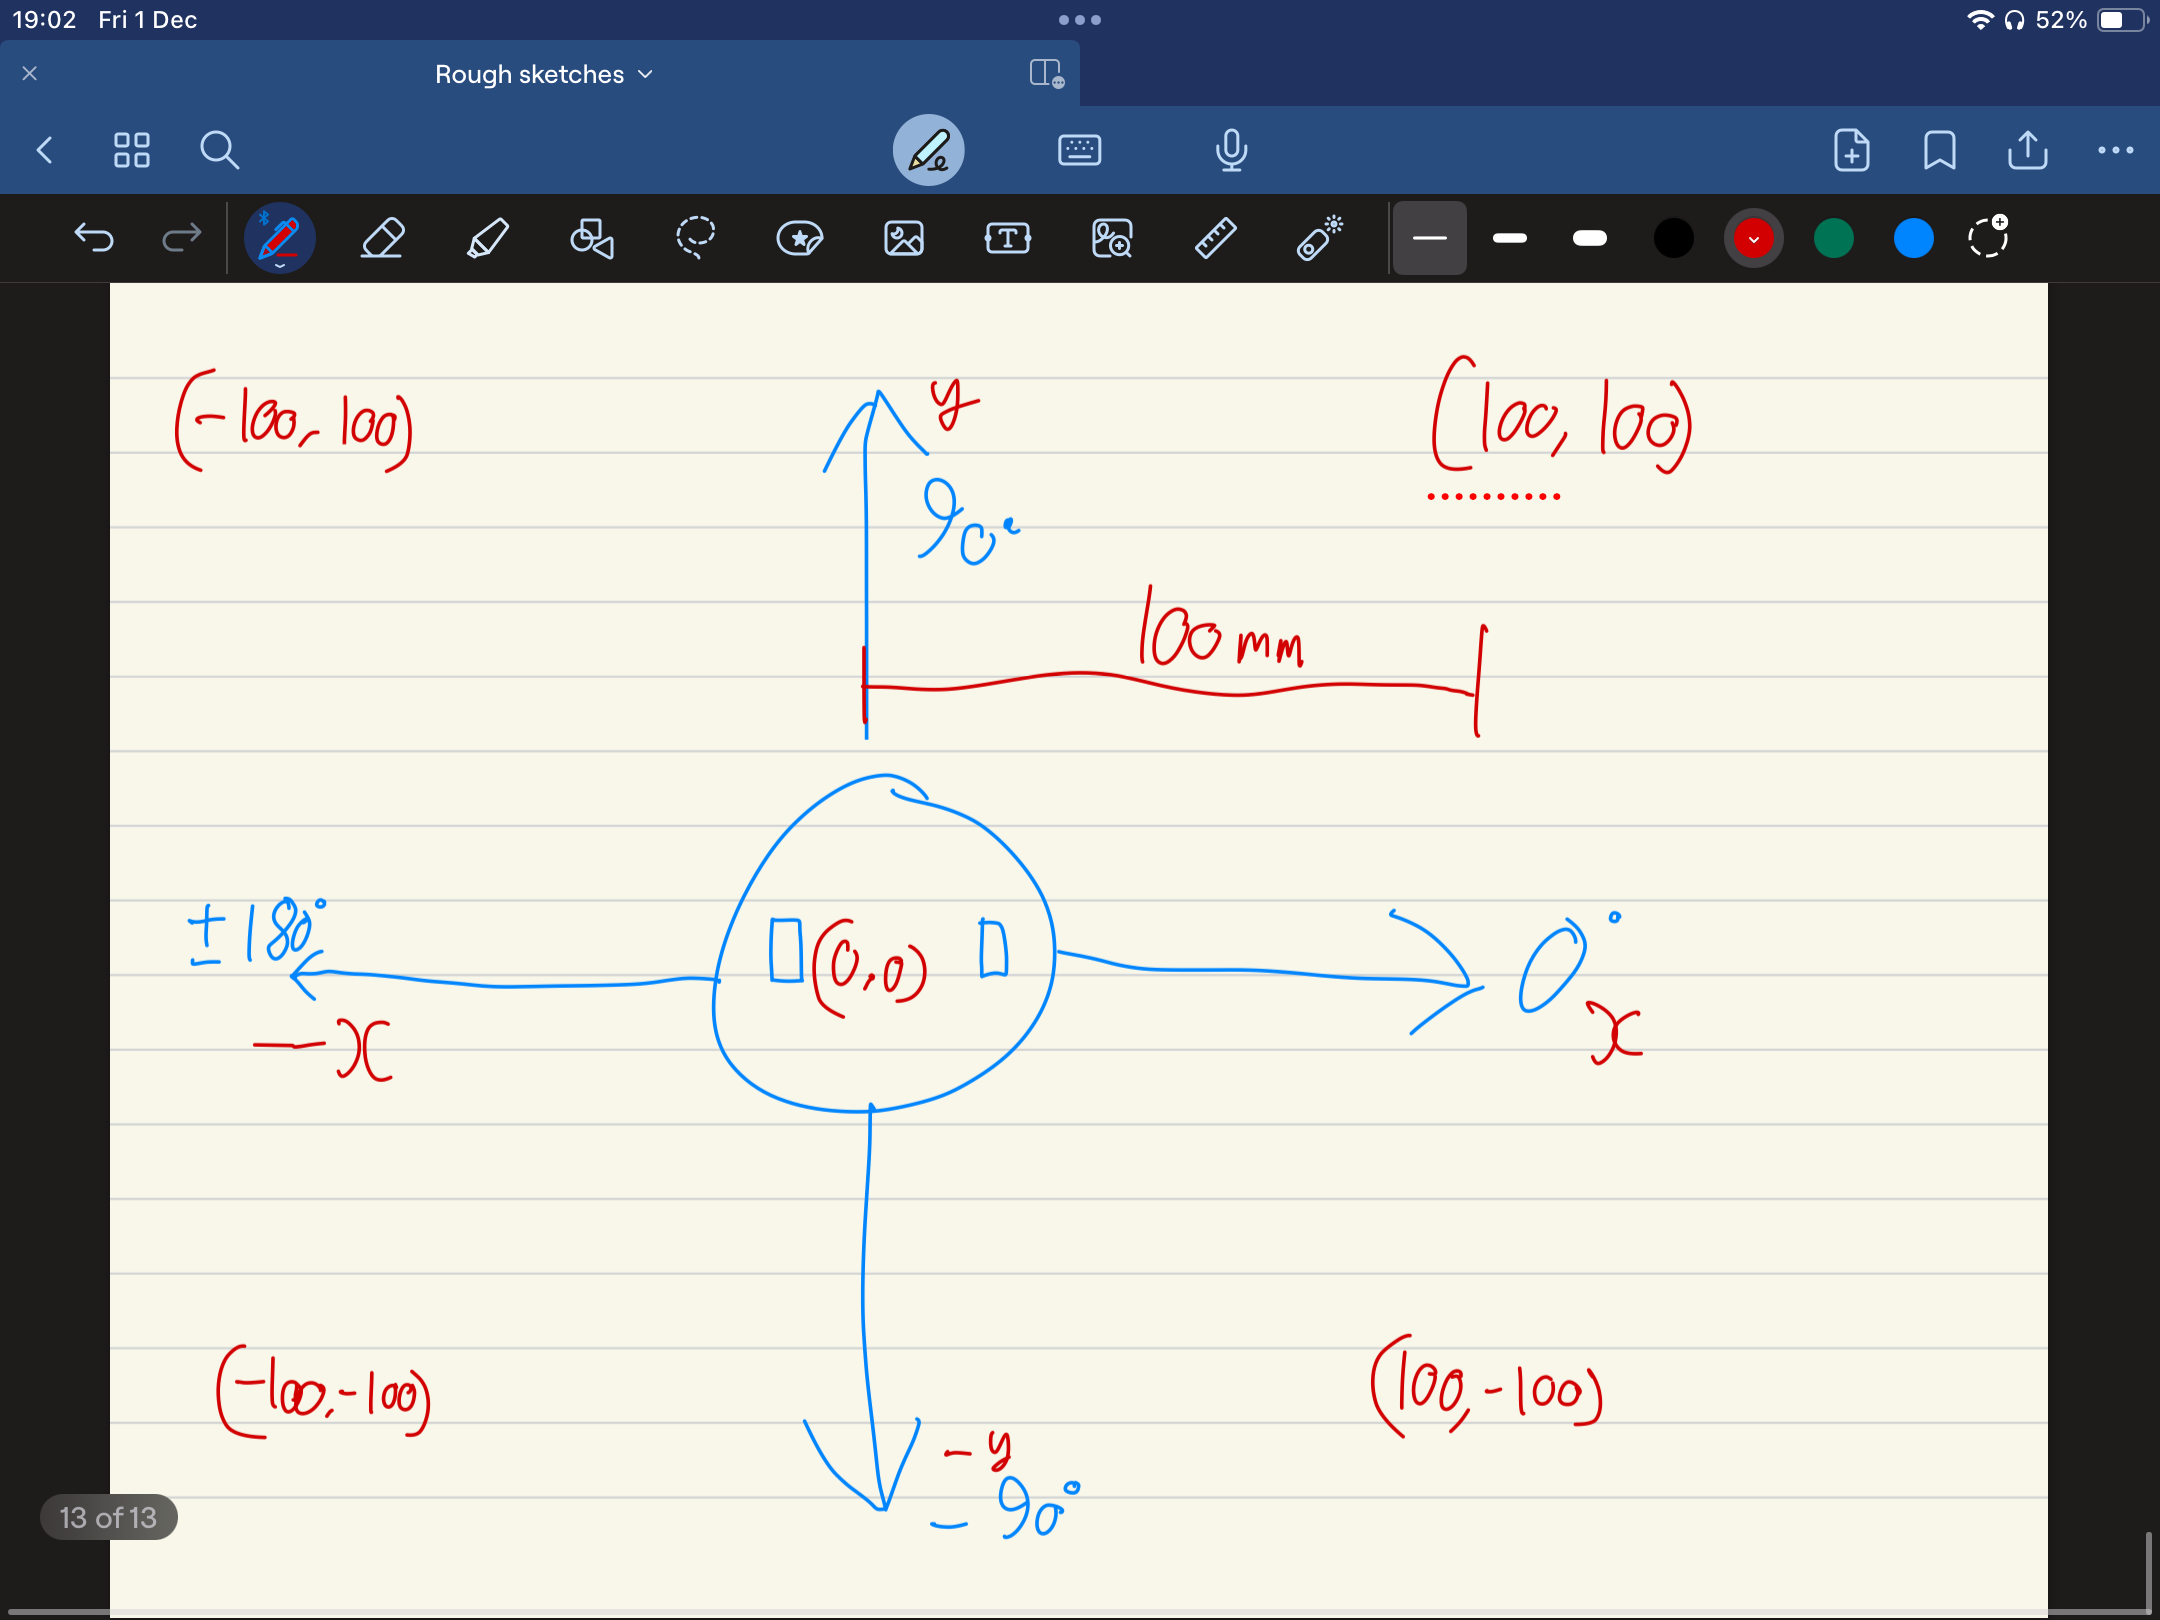 19:02 Fri 1 Dec
52%
Rough sketches
T
(-100, 100)
y
(100, 100)
90°
100mm
±180°
(0,0)
0°
-x
x
(-100,-100)
(100,-100)
-y
-90°
13 of 13